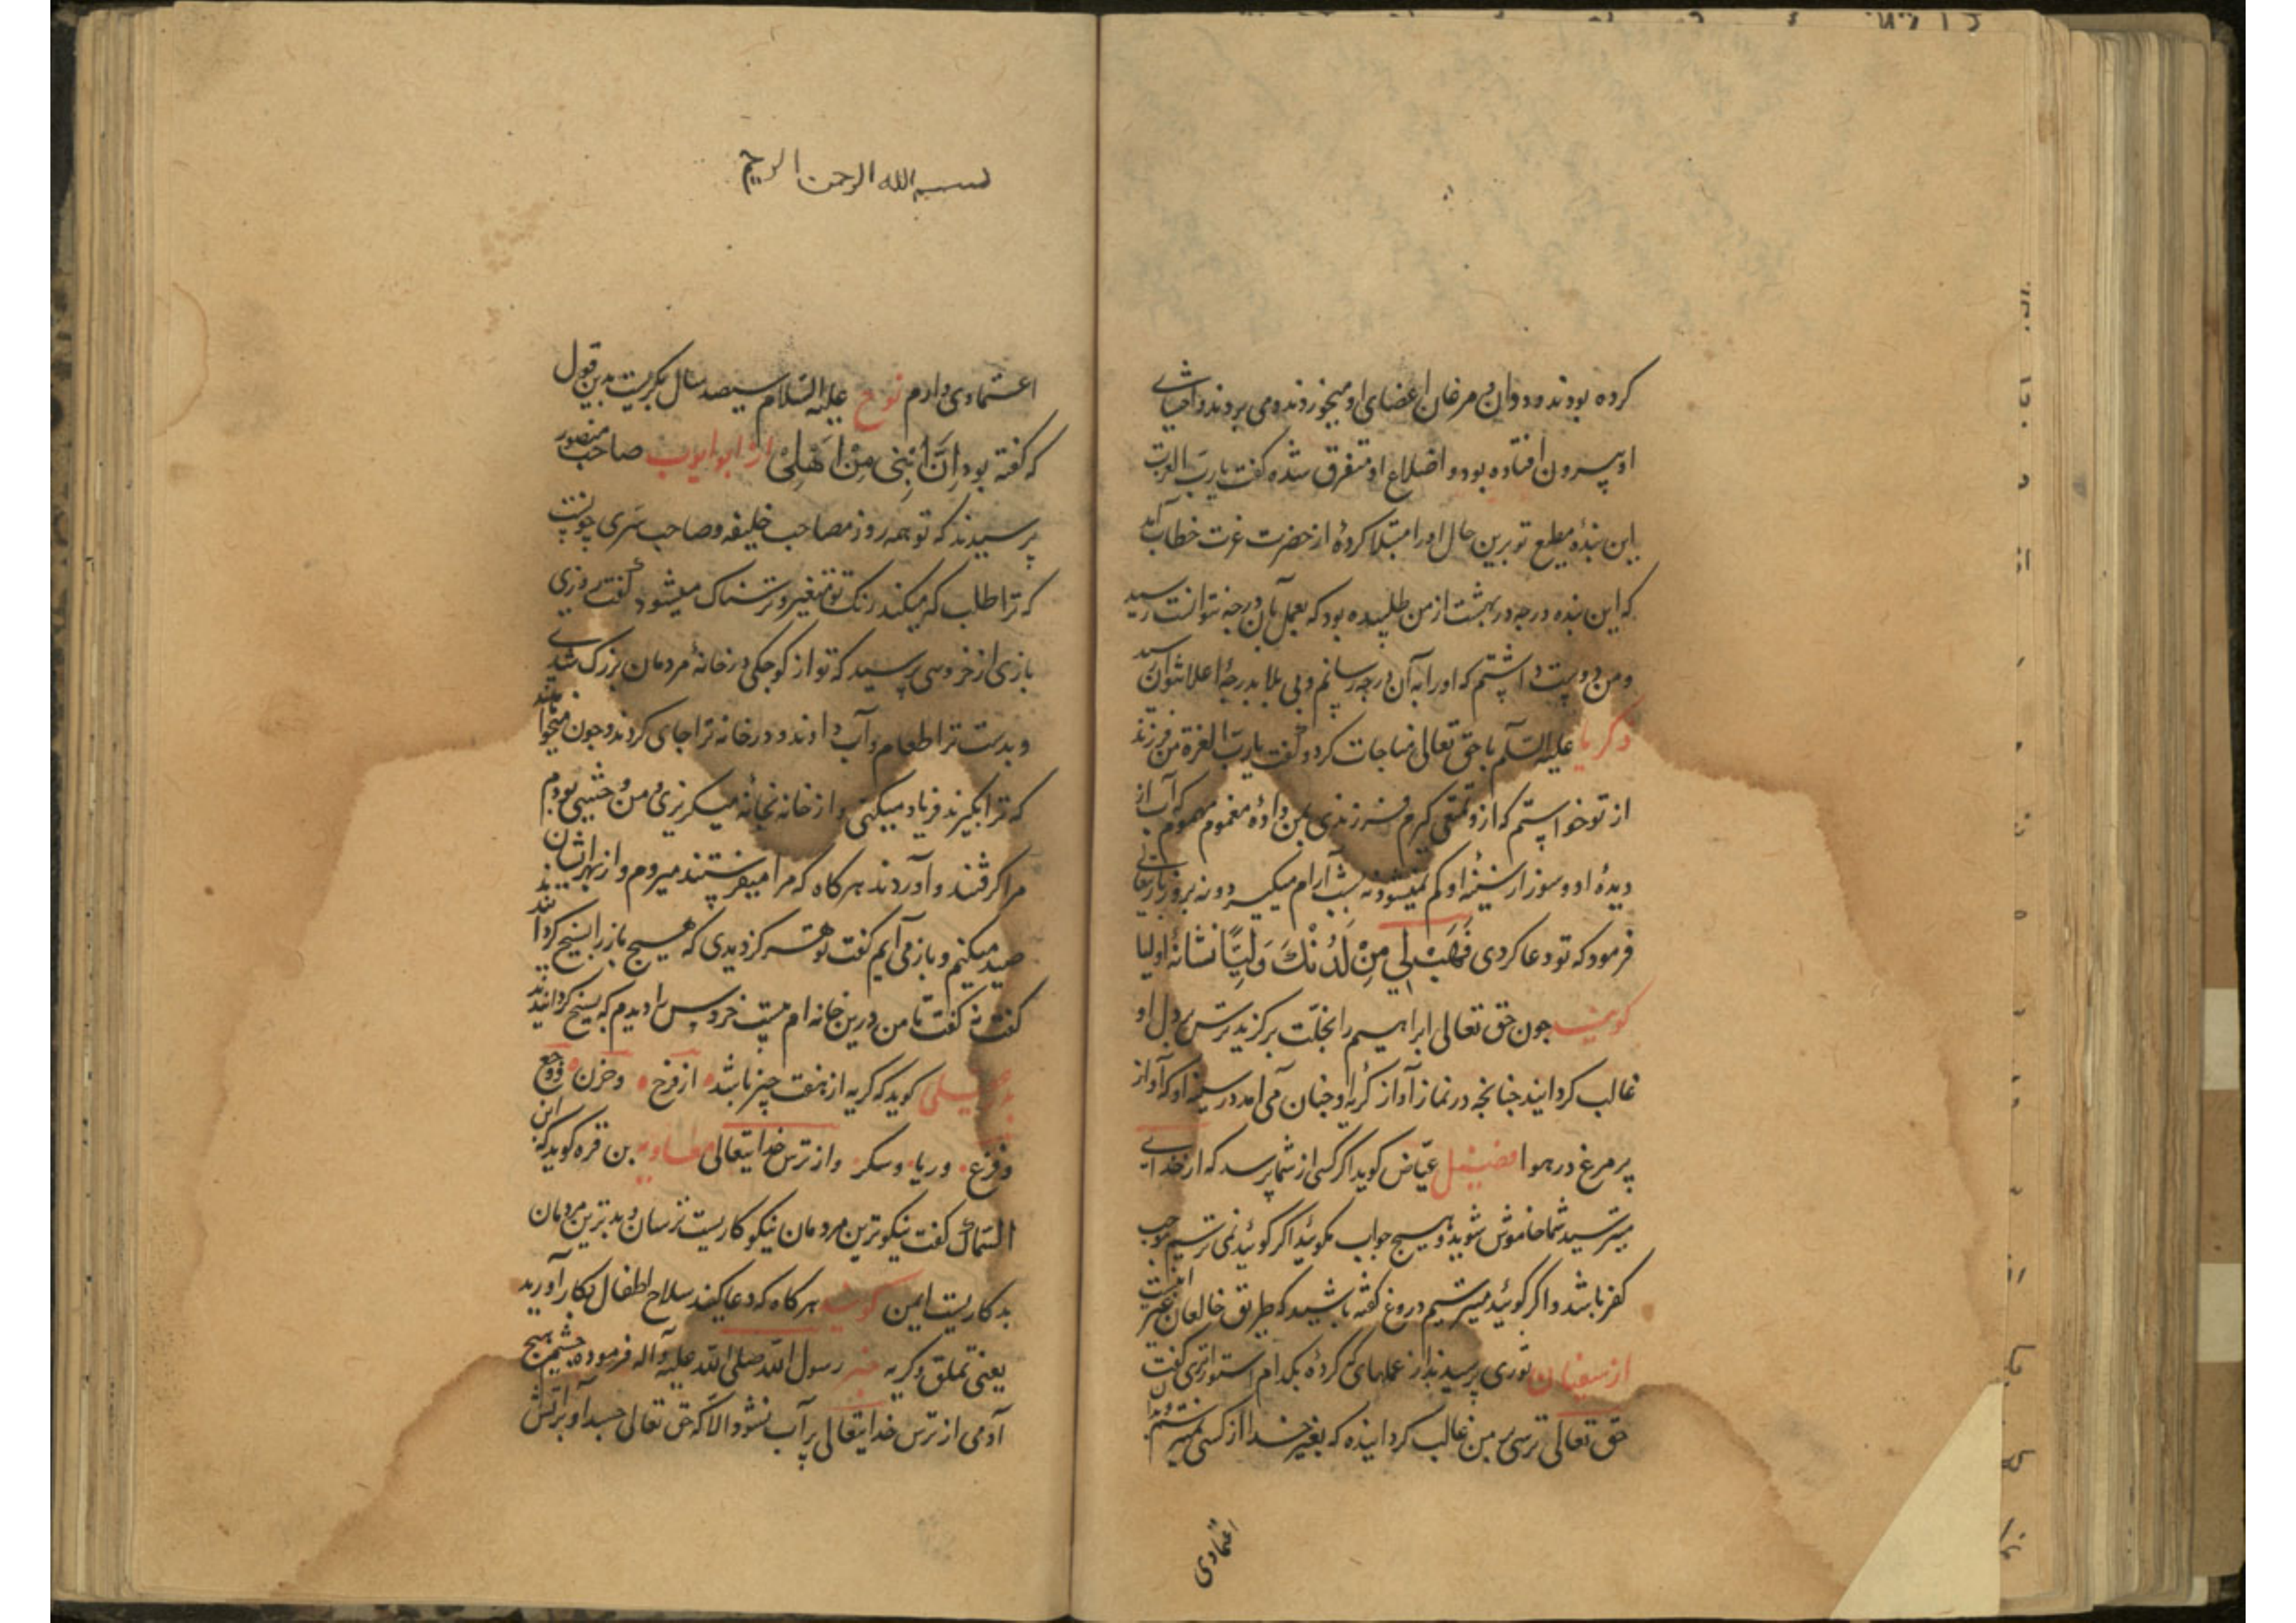 کرده بودند و ددان و مرغان اعضای او میخوردند و می بردند و احشای
او بیرون افتاده بود و اضلاع او متفرق شده گفت یا رب العزت
این بندهٔ مطیع تو برین حال او را مبتلا کردهٔ از حضرت عزت خطاب آمد
که این بنده درجه در بهشت از من طلبیده بود که بعمل بآن درجه نتوانست رسید
و من دوست داشتم که او را به آن درجه رسانم و بی بلا بدرجهٔ اعلا نتوان رسید
زکریا علیه السلام با حق تعالی مناجات کرد و گفت یا رب العزة من فرزند
از تو خواستم که ازو تمتعی گیرم فرزندی بمن دادهٔ مغموم مهموم که آب از
دیدهٔ او و سوز از سینهٔ او کم نمیشود نه بشب آرام میگیرد و نه بروز باریتعالی
فرمود که تو دعا کردی فَهَبْ لِي مِنْ لَدُنْكَ وَلِيًّا نشانهٔ اولیا
گویند چون حق تعالی ابراهیم را بخلت برگزید ترس بر دل او
غالب گردانید چنانچه در نماز آواز گریهٔ او چنان می آمد در سینهٔ او که آواز
پر مرغ در هوا فضیل عیاض گوید اگر کسی از شما پرسد که از خدای
میترسید شما خاموش شوید و هیچ جواب مگوئید اگر گوئید نمی ترسیم موجب
کفر باشد و اگر گوئید میترسیم دروغ گفته باشید که طریق خائفان غیر اینست
از سفیان ثوری پرسیدند از عملهای که کردهٔ بکدام استوارتری گفت
حق تعالی ترسی بر من غالب گردانیده که بغیر خدا از کسی نمیترسم
اعتمادی
بسم الله الرحمن الرحیم
اعتمادی دارم نوح علیه السلام سیصد سال بگریست بدین قول
که گفته بود اِنَّ ابْنِی مِنْ اَهْلِی از ابو ایوب صاحب منصور
پرسیدند که تو همه روز مصاحب خلیفه و صاحب سری چونست
که ترا طلب که میکند رنک تو متغیر و ترسناک میشود گفت روزی
بازی از خروسی پرسید که تو از کوچکی در خانهٔ مردمان بزرک شدی
و بدست ترا طعام و آب دادند و در خانه ترا جای کردند و چون میخواهند
که ترا بگیرند فریاد میکنی و از خانه بخانه میگریزی و من وحشیی بودم
مرا گرفتند و آوردند هرگاه که مرا میفرستند میروم و از بهر ایشان
صید میکنم و باز می آیم گفت تو هرگز دیدی که هیچ باز را بسیخ کردند
گفت نه گفت تا من درین خانه ام بیست خروس را دیدم که بسیخ گردانیدند
گوید که گریه از هفت چیز باشد از فرح و حزن و وجع
و فزع و ریا و سکر و از ترس خدایتعالی معاویه بن قره گوید که ابن
السماک گفت نیکوترین مردمان نیکوکاریست ترسان و بدترین مردمان
بدکاریست ایمن گویند هرگاه که دعا کنید سلاح اطفال بکار آورید
یعنی تملق و گریه خبر رسول الله صلی الله علیه و آله فرموده چشم هیچ
آدمی از ترس خدایتعالی پر آب نشود الا که حق تعالی جسد او بر آتش